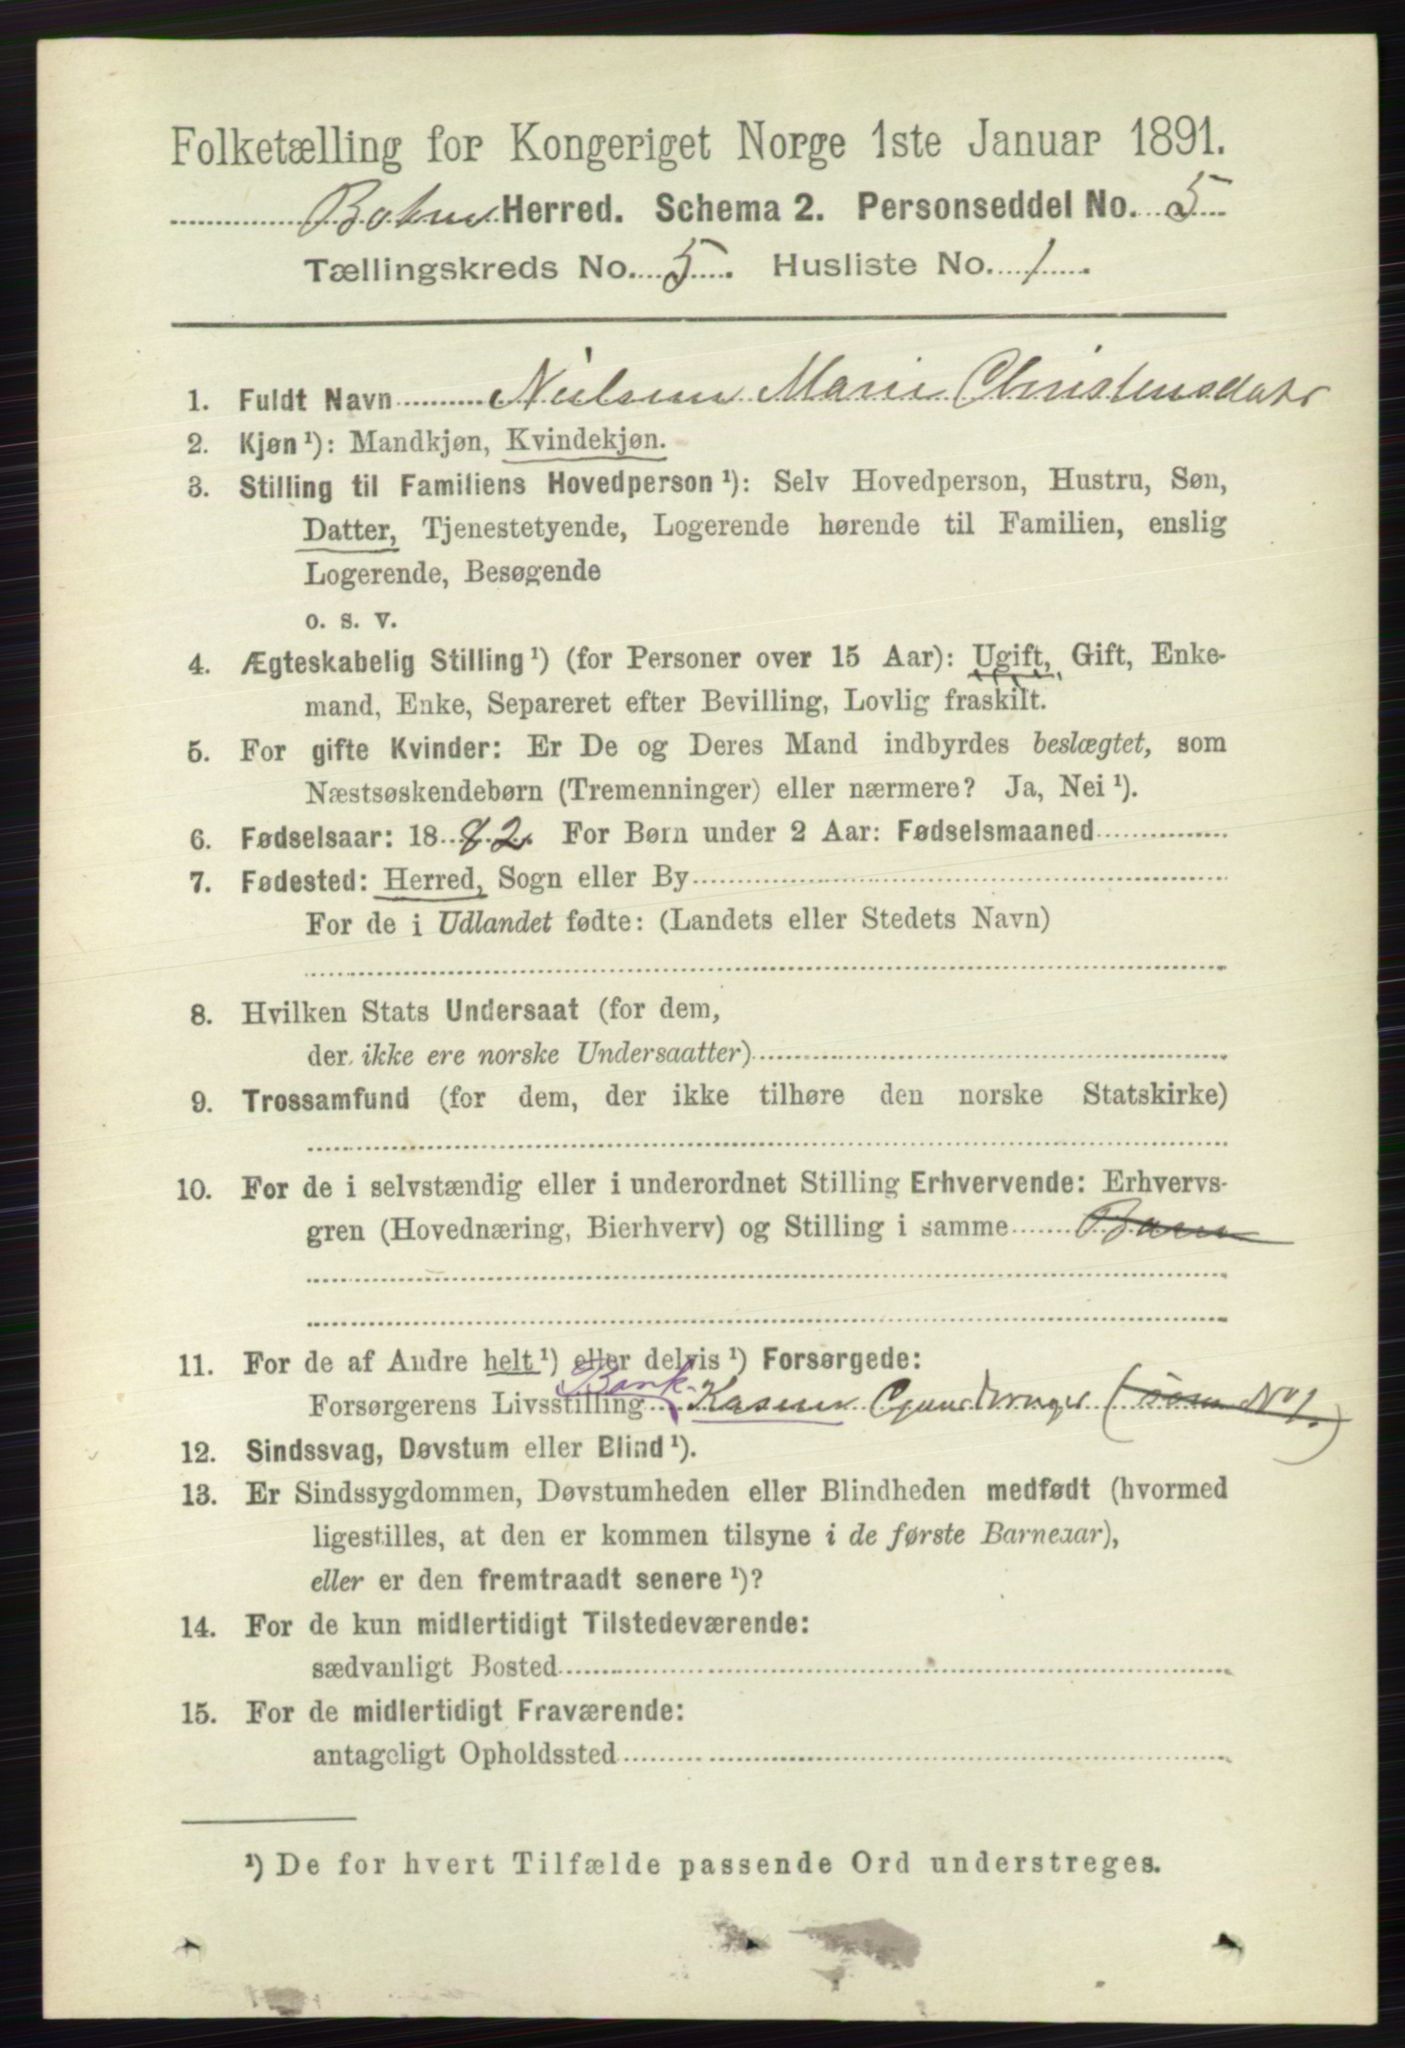 Folketælling for Kongeriget Norge 1ste Januar 1891.
Herred. Schema 2. Personseddel No. 5
Tællingskreds No. 5. Husliste No. 1.
1. Fuldt Navn Nielsine Marie Christensdatr
2. Kjøn ¹): Mandkjøn, Kvindekjøn.
3. Stilling til Familiens Hovedperson ¹): Selv Hovedperson, Hustru, Søn,
Datter, Tjenestetyende, Logerende hørende til Familien, enslig
Logerende, Besøgende
o. s. v.
4. Ægteskabelig Stilling ¹) (for Personer over 15 Aar): Ugift, Gift, Enke-
mand, Enke, Separeret efter Bevilling, Lovlig fraskilt.
5. For gifte Kvinder: Er De og Deres Mand indbyrdes beslægtet, som
Næstsøskendebørn (Tremenninger) eller nærmere? Ja, Nei ¹).
6. Fødselsaar: 1882. For Børn under 2 Aar: Fødselsmaaned
7. Fødested: Herred, Sogn eller By
For de i Udlandet fødte: (Landets eller Stedets Navn)
8. Hvilken Stats Undersaat (for dem,
der ikke ere norske Undersaatter)
9. Trossamfund (for dem, der ikke tilhøre den norske Statskirke)
10. For de i selvstændig eller i underordnet Stilling Erhvervende: Erhvervs-
gren (Hovednæring, Bierhverv) og Stilling i samme Barn
11. For de af Andre helt ¹) eller delvis ¹) Forsørgede:
Bank-
Forsørgerens Livsstilling Kasser Gaardbruger (som No 1.)
12. Sindssvag, Døvstum eller Blind ¹).
13. Er Sindssygdommen, Døvstumheden eller Blindheden medfødt (hvormed
ligestilles, at den er kommen tilsyne i de første Barneaar),
eller er den fremtraadt senere ¹)?
14. For de kun midlertidigt Tilstedeværende:
sædvanligt Bosted
15. For de midlertidigt Fraværende:
antageligt Opholdssted
¹) De for hvert Tilfælde passende Ord understreges.